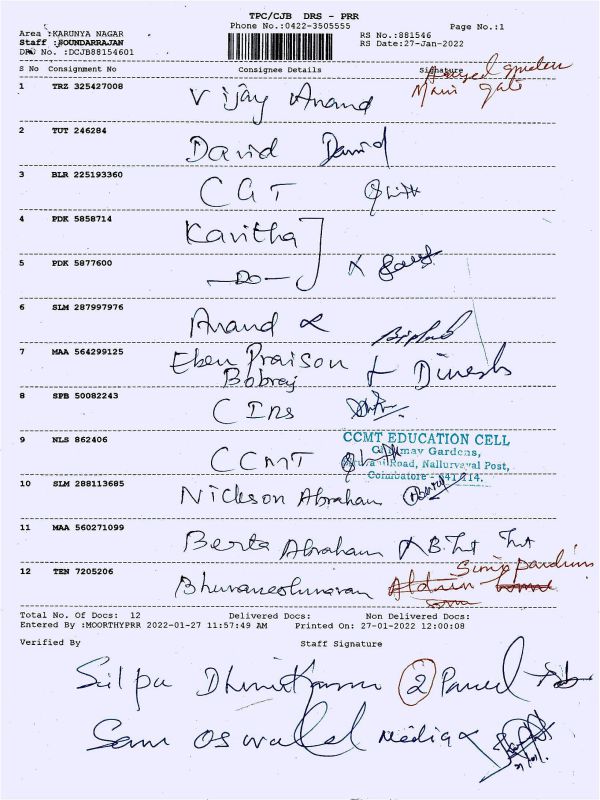 TPC/CJB DRS - PRR
Phone No.:0422-3505555 Page No.:1
Area :KARUNYA NAGAR
Staff :SOUNDARRAJAN RS No.:881546
DRS No. :DCJB88154601 RS Date:27-Jan-2022
S No Consignment No Consignee Details Signature
Main gate
1 TRZ 325427008 Vijay Anand
2 TUT 246284 David David
3 BLR 225193360 CGT
4 PDK 5858714 Kavitha
5 PDK 5877600 -Do-
6 SLM 287997976 Anand
7 MAA 564299125 Eben Praison Dinesh
Bobraj
8 SPB 50082243
9 NLS 862406 CCMT
CCMT EDUCATION CELL
Gardens,
Road, Nallurvayal Post,
Coimbatore - 641 114.
10 SLM 288113685 Nickson Abraham
11 MAA 560271099 Berta Abraham
12 TEN 7205206
Total No. Of Docs: 12 Delivered Docs: Non Delivered Docs:
Entered By :MOORTHYPRR 2022-01-27 11:57:49 AM Printed On: 27-01-2022 12:00:08
Verified By Staff Signature
2 Parcel
Sam oswald media